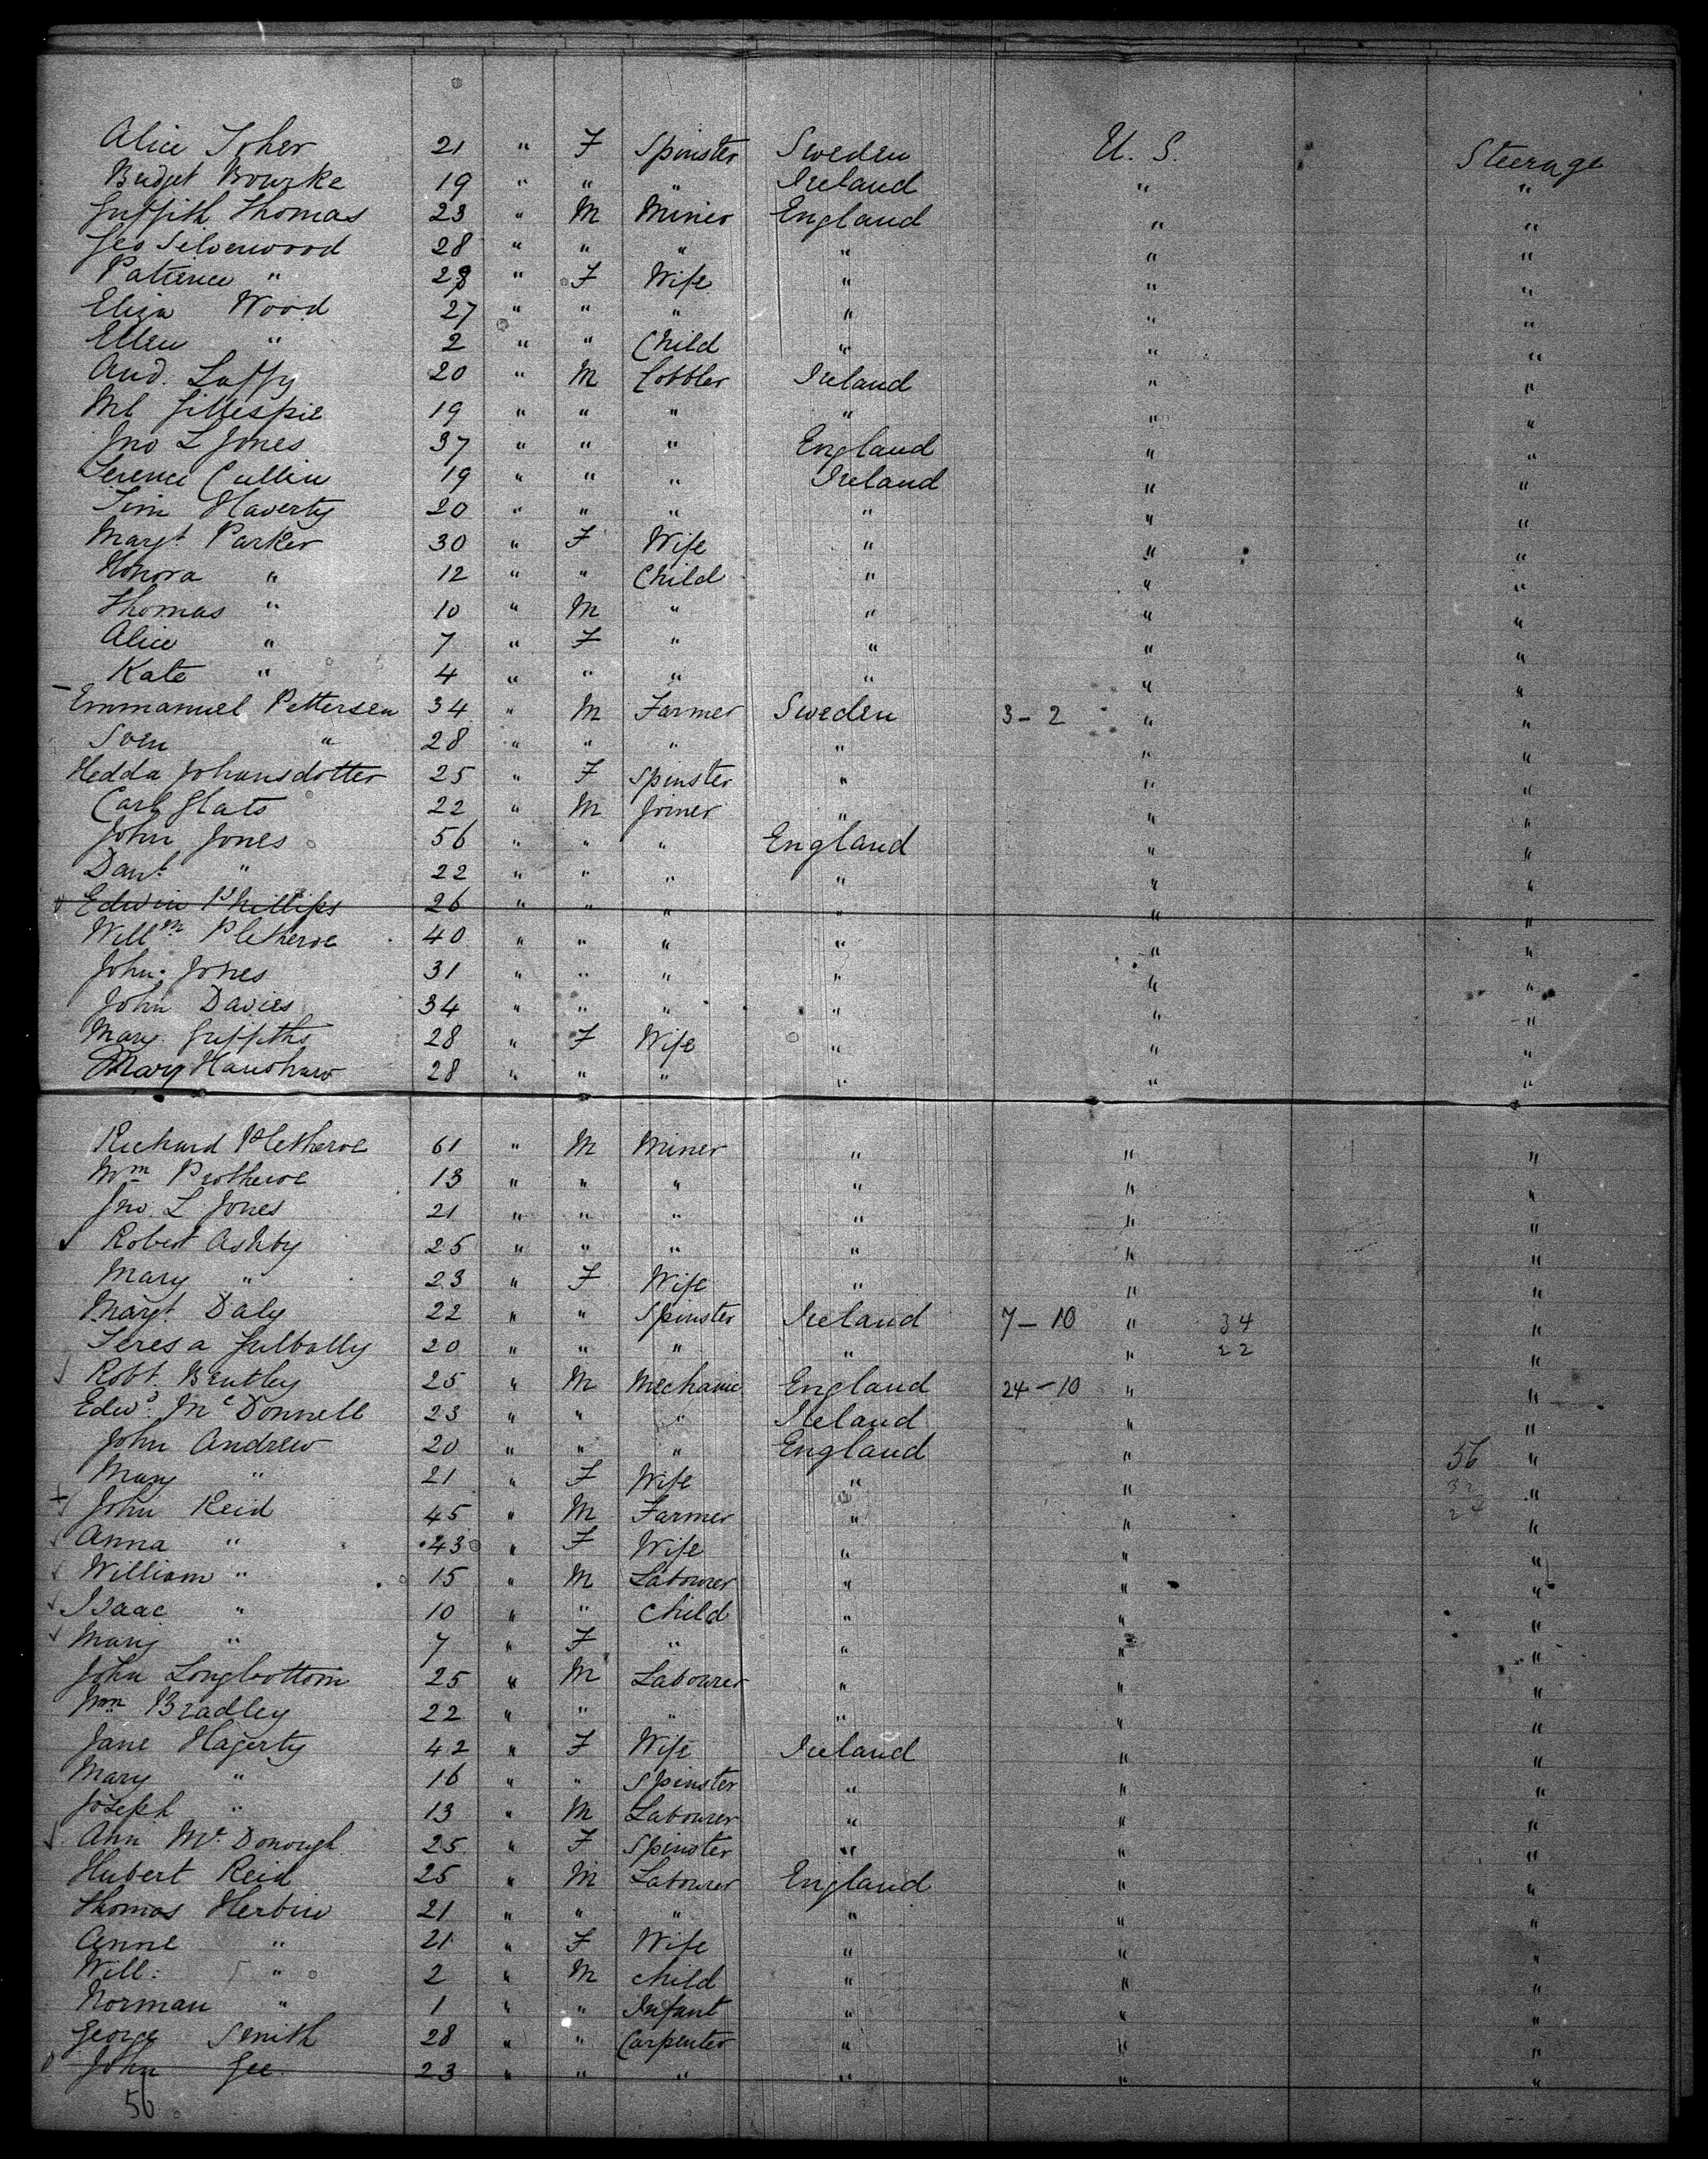 Alice Toher 21 " F Spinster Sweden U. S. Steerage
Bridget Bourke 19 " " " Ireland " "
Griffith Thomas 23 " M Miner England " "
Geo Silverwood 28 " " " " " "
Patience " 28 " F Wife " " "
Eliza Wood 27 " " " " " "
Ellen " 2 " " Child " " "
And. Laffy 20 " M Cobbler Ireland " "
Ml Gillespie 19 " " " " " "
Jno L Jones 37 " " " England " "
Terence Cullin 19 " " " Ireland " "
Tim Haverty 20 " " " " " "
Margt. Parker 30 " F Wife " " "
Honora " 12 " " Child " " "
Thomas " 10 " M " " " "
Alice " 7 " F " " " "
Kate " 4 " " " " " "
Emmanuel Pettersen 34 " M Farmer Sweden 3-2 " "
Sven " 28 " " " " " "
Hedda Johansdotter 25 " F Spinster " " "
Carl Glats 22 " M Joiner " " "
John Jones 56 " " " England " "
Danl. " 22 " " " " " "
Edwin Phillips 26 " " " " " "
Willm Pletheroe 40 " " " " " "
John Jones 31 " " " " " "
John Davies 34 " " " " " "
Mary Griffiths 28 " F Wife " " "
Mary Hanshaw 28 " " " " " "
Richard Pletheroe 61 " M Miner " " "
Wm Protheroe 13 " " " " " "
Jno. L Jones 21 " " " " " "
Robert Ashby 25 " " " " " "
Mary " 23 " F Wife " " "
Margt. Daly 22 " " Spinster Ireland 7-10 " 34 "
Teresa Gilbally 20 " " " " " 22 "
Robt. Bentley 25 " M Mechanic England 24-10 " "
Edwd. McDonnell 23 " " " Ireland " "
John Andrew 20 " " " England " 56 "
Mary " 21 " F Wife " " 32 "
John Reid 45 " M Farmer " " 24 "
Anna " 43 " F Wife " " "
William " 15 " M Labourer " " "
Isaac " 10 " " Child " " "
Mary " 7 " F " " " "
John Longbottom 25 " M Labourer " " "
Wm Bradley 22 " " " " " "
Jane Hagerty 42 " F Wife Ireland " "
Mary " 16 " " Spinster " " "
Joseph " 13 " M Labourer " " "
Ann McDonough 25 " F Spinster " " "
Hubert Reid 25 " M Labourer England " "
Thomas Herbin 21 " " " " " "
Anne " 21 " F Wife " " "
Will: " 2 " M Child " " "
Norman " 1 " " Infant " " "
George Smith 28 " " Carpenter " " "
John Gee 23 " " " " " "
56